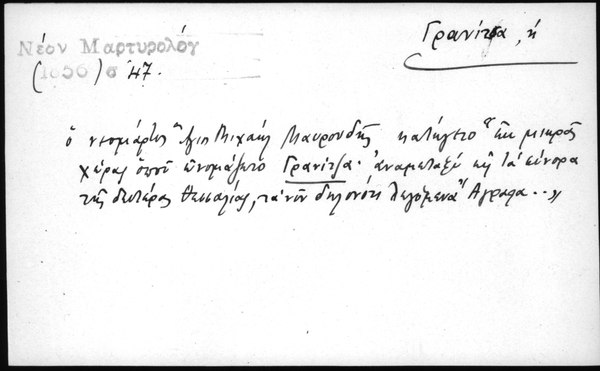 Γρανίτσα, ή
Νέον Μαρτυρολόγ
(1856) σ 47.
ὁ νεομάρτυς Ἅγιος Μιχαήλ Μαυρουδής κατήγετο "ἐκ μικρᾶς
χώρας ὁποῦ ὠνομάζετο Γρανίτζα· ἀναμεταξύ εἰς τά σύνορα
τῆς δευτέρας Θεσσαλίας, τά νῦν δηλονότι λεγόμενα Ἄγραφα..»